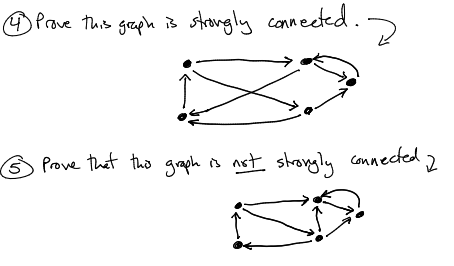 ④ Prove this graph is strongly connected.
⑤ Prove that this graph is not strongly connected